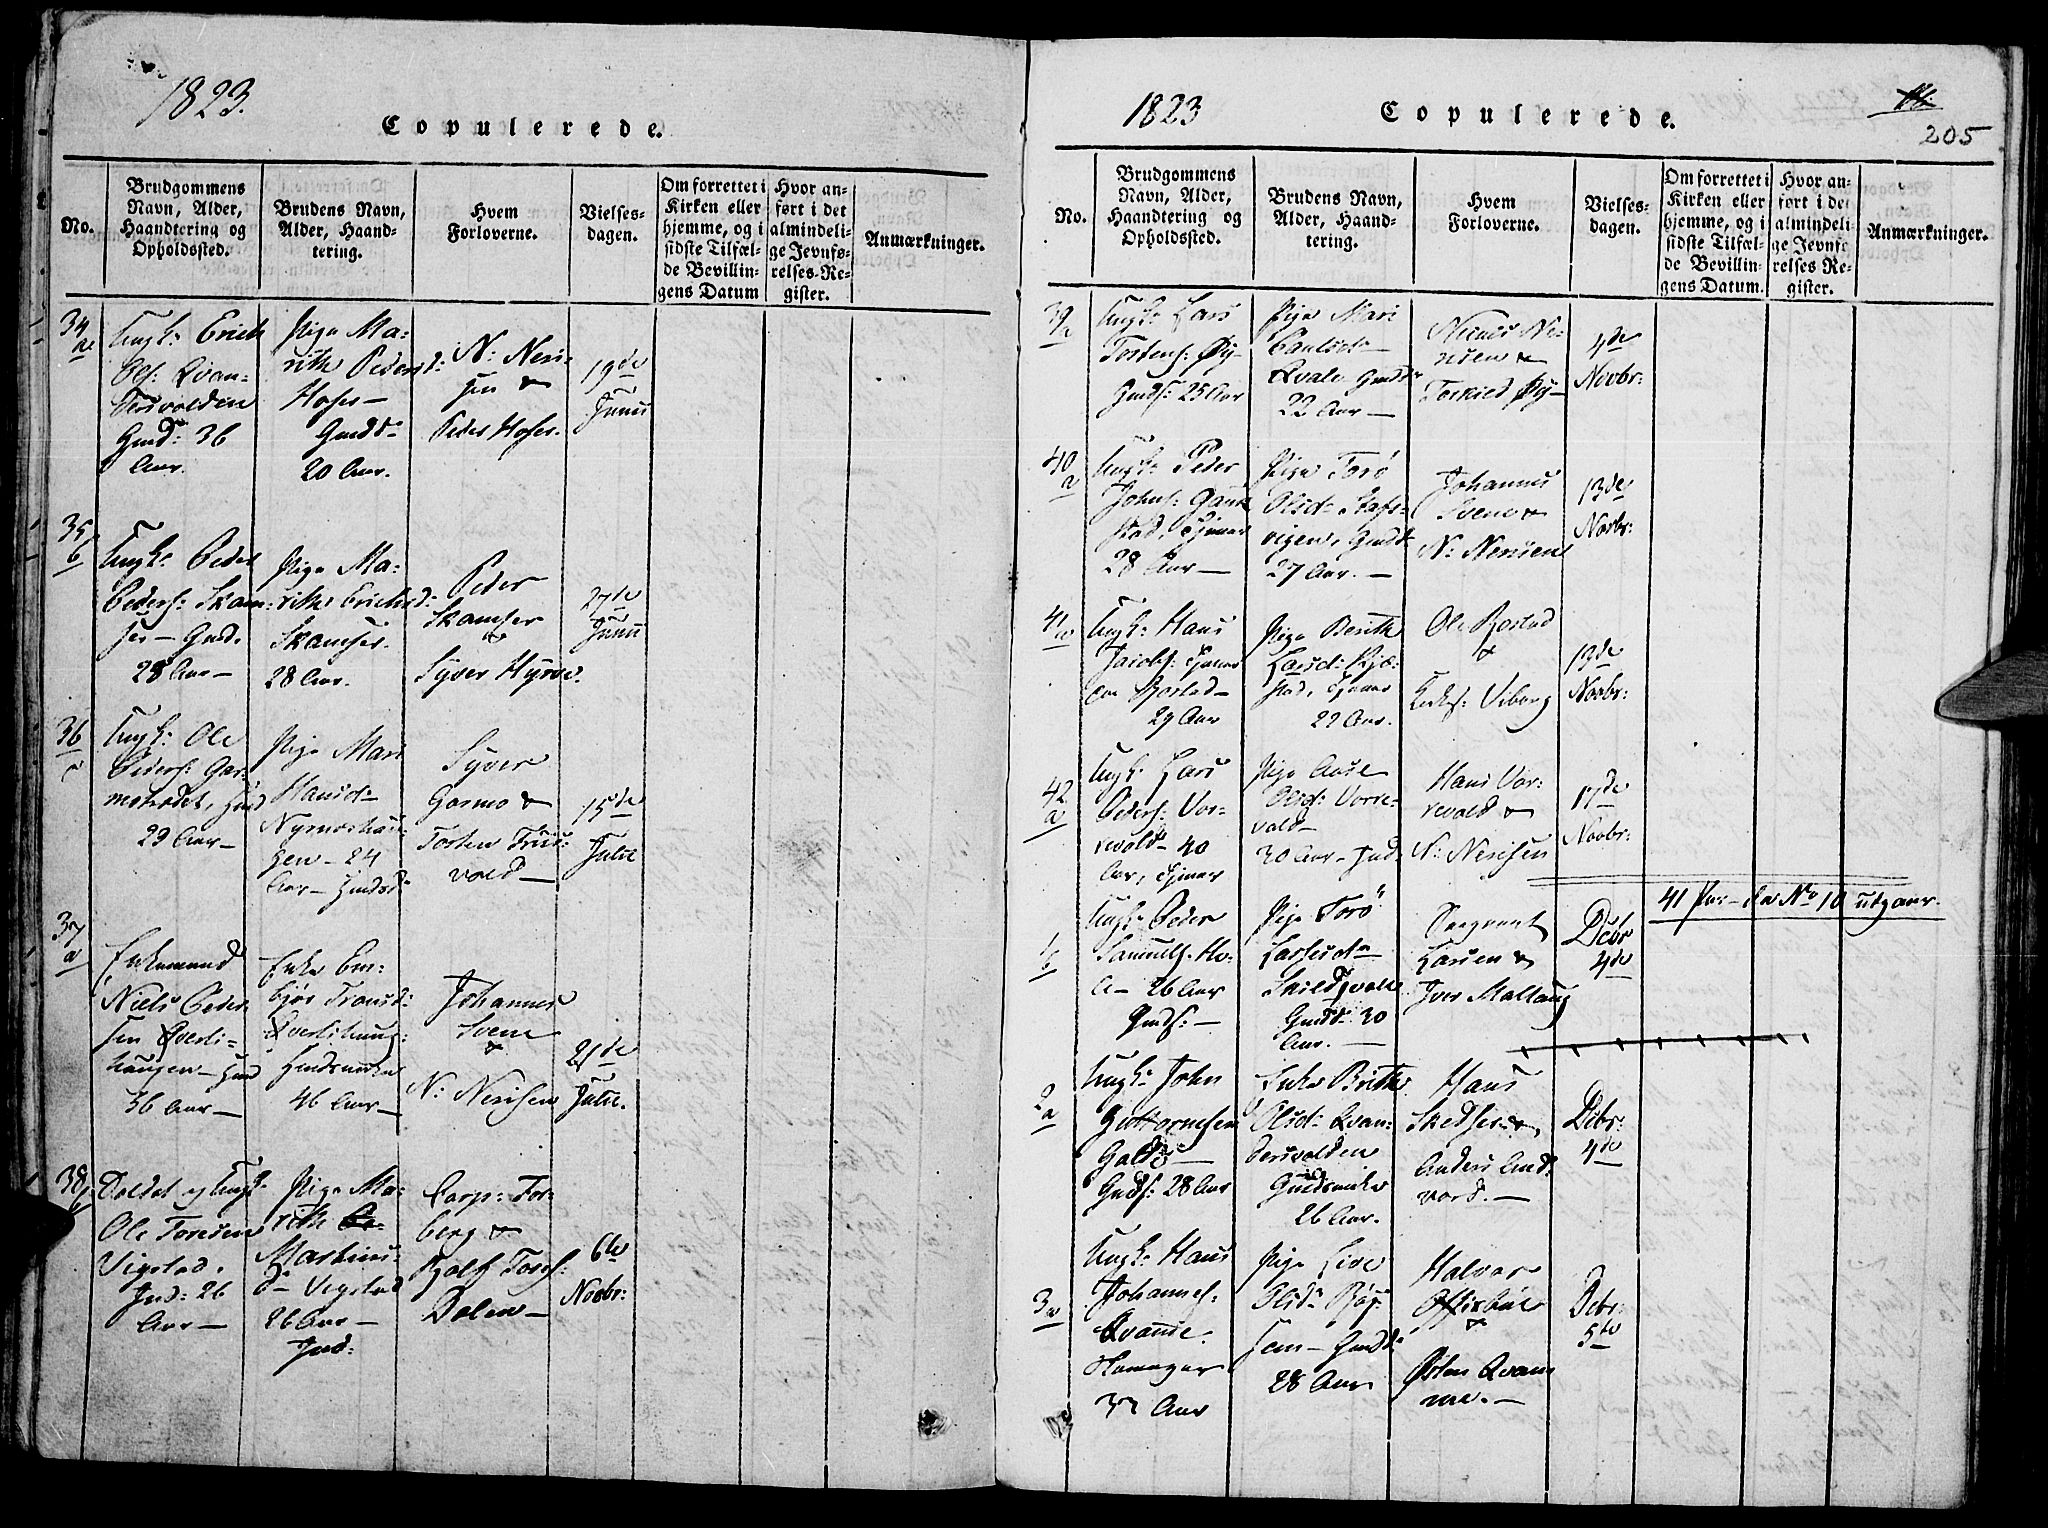 1823.
Copulerede.
No.
Brudgommens
Navn, Alder,
Haandtering og
Opholdssted.
Brudens Navn,
Alder, Haand-
tering.
Hvem
Forloverne.
Vielses-
dagen.
Om forrettet i
Kirken eller
hjemme, og i
sidste Tilfæl-
de Bevillin-
gens Datum
Hvor an-
ført i det
almindeli-
ge Jevnfø-
relses-Re-
gister.
Anmærkninger.
34
a
Ungk: Erich
Ols: Qvan-
dersvolden
Gmd: 36
Aar.
Pige Ma-
rithe Pedersd:
Hofer-
Gmdd-
20 Aar.
N: Neri-
sen &
Peder Hofer.
19de
Junii
35
b
Ungk: Peder
Peders: Skam-
ser- Gmd.
28 Aar-
Pige Ma-
rithe Erichsd:
Skamser.
28 Aar.
Peder
Skamser
&
Syver Hyrve.
27de
Junii
36
c
Ungk: Ole
Peders: Gar-
motrædet,
29 Aar-
Pige Mari
Hansd-
gen- 24
Aar-
Syver
Garmo &
Tosten
vold-
15de
Julii
37
a
Enkemand
Niels Peder-
sen Øverli-
haugen-
36 Aar-
Enke Em-
bjør Transd:
Øverlihaug:
46 Aar-
Johannes
Svene
&
N: Nerisen
21de
Julii.
38
b
Soldat og Ungk:
Ole Toresen
Vigstad.
Ind: 26
Aar-
Pige Ma-
rith
Martinus-
d- Vigstad
26 Aar-
Ind:
Corp: Tor-
berg &
Rolf Tores:
Dalen-
6te
Novbr:
1823
Copulerede.
205
No.
Brudgommens
Navn, Alder,
Haandtering og
Opholdssted.
Brudens Navn,
Alder, Haand-
tering.
Hvem
Forloverne.
Vielses-
dagen.
Om forrettet i
Kirken eller
hjemme, og i
sidste Tilfæl-
de Bevillin-
gens Datum.
Hvor an-
ført i det
almindeli-
ge Jevnfø-
relses Re-
gister.
Anmærkninger.
39
a
Ungk: Lars
Tostens: Øy-
Gmds: 25 Aar
Pige Mari
Paulsd-
Qvale Gmdd-
22 Aar-
Neriis Ne-
risen &
Torkied Øy-
4de
Novbr:
40
a
Ungk: Peder
Johns: Gauk-
stad, Tjener
28 Aar-
Pige Torø
Olsd- Stafs-
vigen, Gmdd-
27 Aar.-
Johannes
Svene &
N: Nerisen
13de
Novbr:
41
a
Ungk: Hans
Jacobs: Tjener
paa Bostad-
29 Aar
Pige Berithe
Larsd: Kjæ-
stad, Tjener
22 Aar.
Ole Bostad
&
Viborg
13de
Novbr:
42
a
Ungk: Lars
Peders: Vor-
revold- 40
Aar, Tjener
Pige Anne
Olsd: Vorre-
vold-
30 Aar- Ind.
Hans Vor-
revold &
N: Nerisen
17de
Novbr:
41 Par- da No 10 utgaar.
1
b
Ungk: Peder
Samuels. Ho-
le- 26 Aar
Gmds:-
Pige Torø
Larsesd-
Skieldqvale
Gmdd- 30
Aar.-
Sergeant
Larsen &
Iver Mattaug
Debr
4de
2
a
Ungk: John
Guttormsen
Galde-
Gmds: 28 Aar
Enke Brithe
Olsd- Qvan-
dersvolden
Gmdsenke
26 Aar.
Hans
Skedser &
Anders And-
vord.-
Debr:
4de
3
a
Ungk: Hans
Johannes:
Qvande.
37 Aar
Pige Live
Olsd- Røg-
sem- Gmdd-
28 Aar
Halvor
Offigsbøe
&
Østen Qvam-
me.-
Debr:
5te